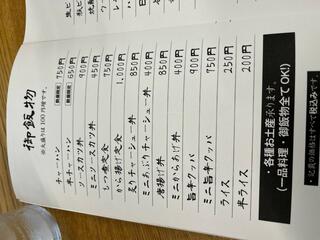 御飯物
※大盛りは100円増です。
数量限定 チャーハン 750円
数量限定 半チャーハン 650円
ソースカツ丼 900円
ミニソースカツ丼 450円
もつ煮定食 750円
から揚げ定食 1,000円
炙りチャーシュー丼 850円
ミニあぶりチャーシュー丼 400円
唐揚げ丼 850円
ミニからあげ丼 400円
旨辛クッパ 900円
ミニ旨辛クッパ 750円
ライス 250円
半ライス 200円
・各種お土産承ります。
(一品料理・御飯物全てOK!)
・記載の価格はすべて税込みです。